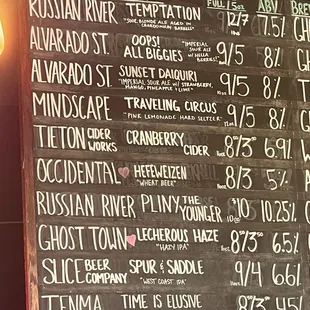 FULL / 5oz ABV
RUSSIAN RIVER TEMPTATION 12/7 7.5%
"SOUR BLONDE ALE AGED IN CHARDONNAY BARRELS"
ALVARADO ST. OOPS! ALL BIGGIES "IMPERIAL SOUR ALE W/ HELLA BERRIES" 9/5 8%
ALVARADO ST. SUNSET DAIQUIRI 9/5 8%
"IMPERIAL SOUR ALE W/ STRAWBERRY, MANGO, PINEAPPLE & LIME"
MINDSCAPE TRAVELING CIRCUS 9/5 8%
"PINK LEMONADE HARD SELTZER"
TIETON CIDER WORKS CRANBERRY CIDER 8/3⁵⁰ 6.9%
OCCIDENTAL HEFEWEIZEN 8/3 5%
"WHEAT BEER"
RUSSIAN RIVER PLINY THE YOUNGER 10oz $10 10.25%
GHOST TOWN LECHEROUS HAZE 8⁵⁰/3⁵⁰ 6.5%
"HAZY IPA"
SLICE BEER COMPANY SPUR & SADDLE 9/4 6.6%
"WEST COAST IPA"
TENMA TIME IS ELUSIVE